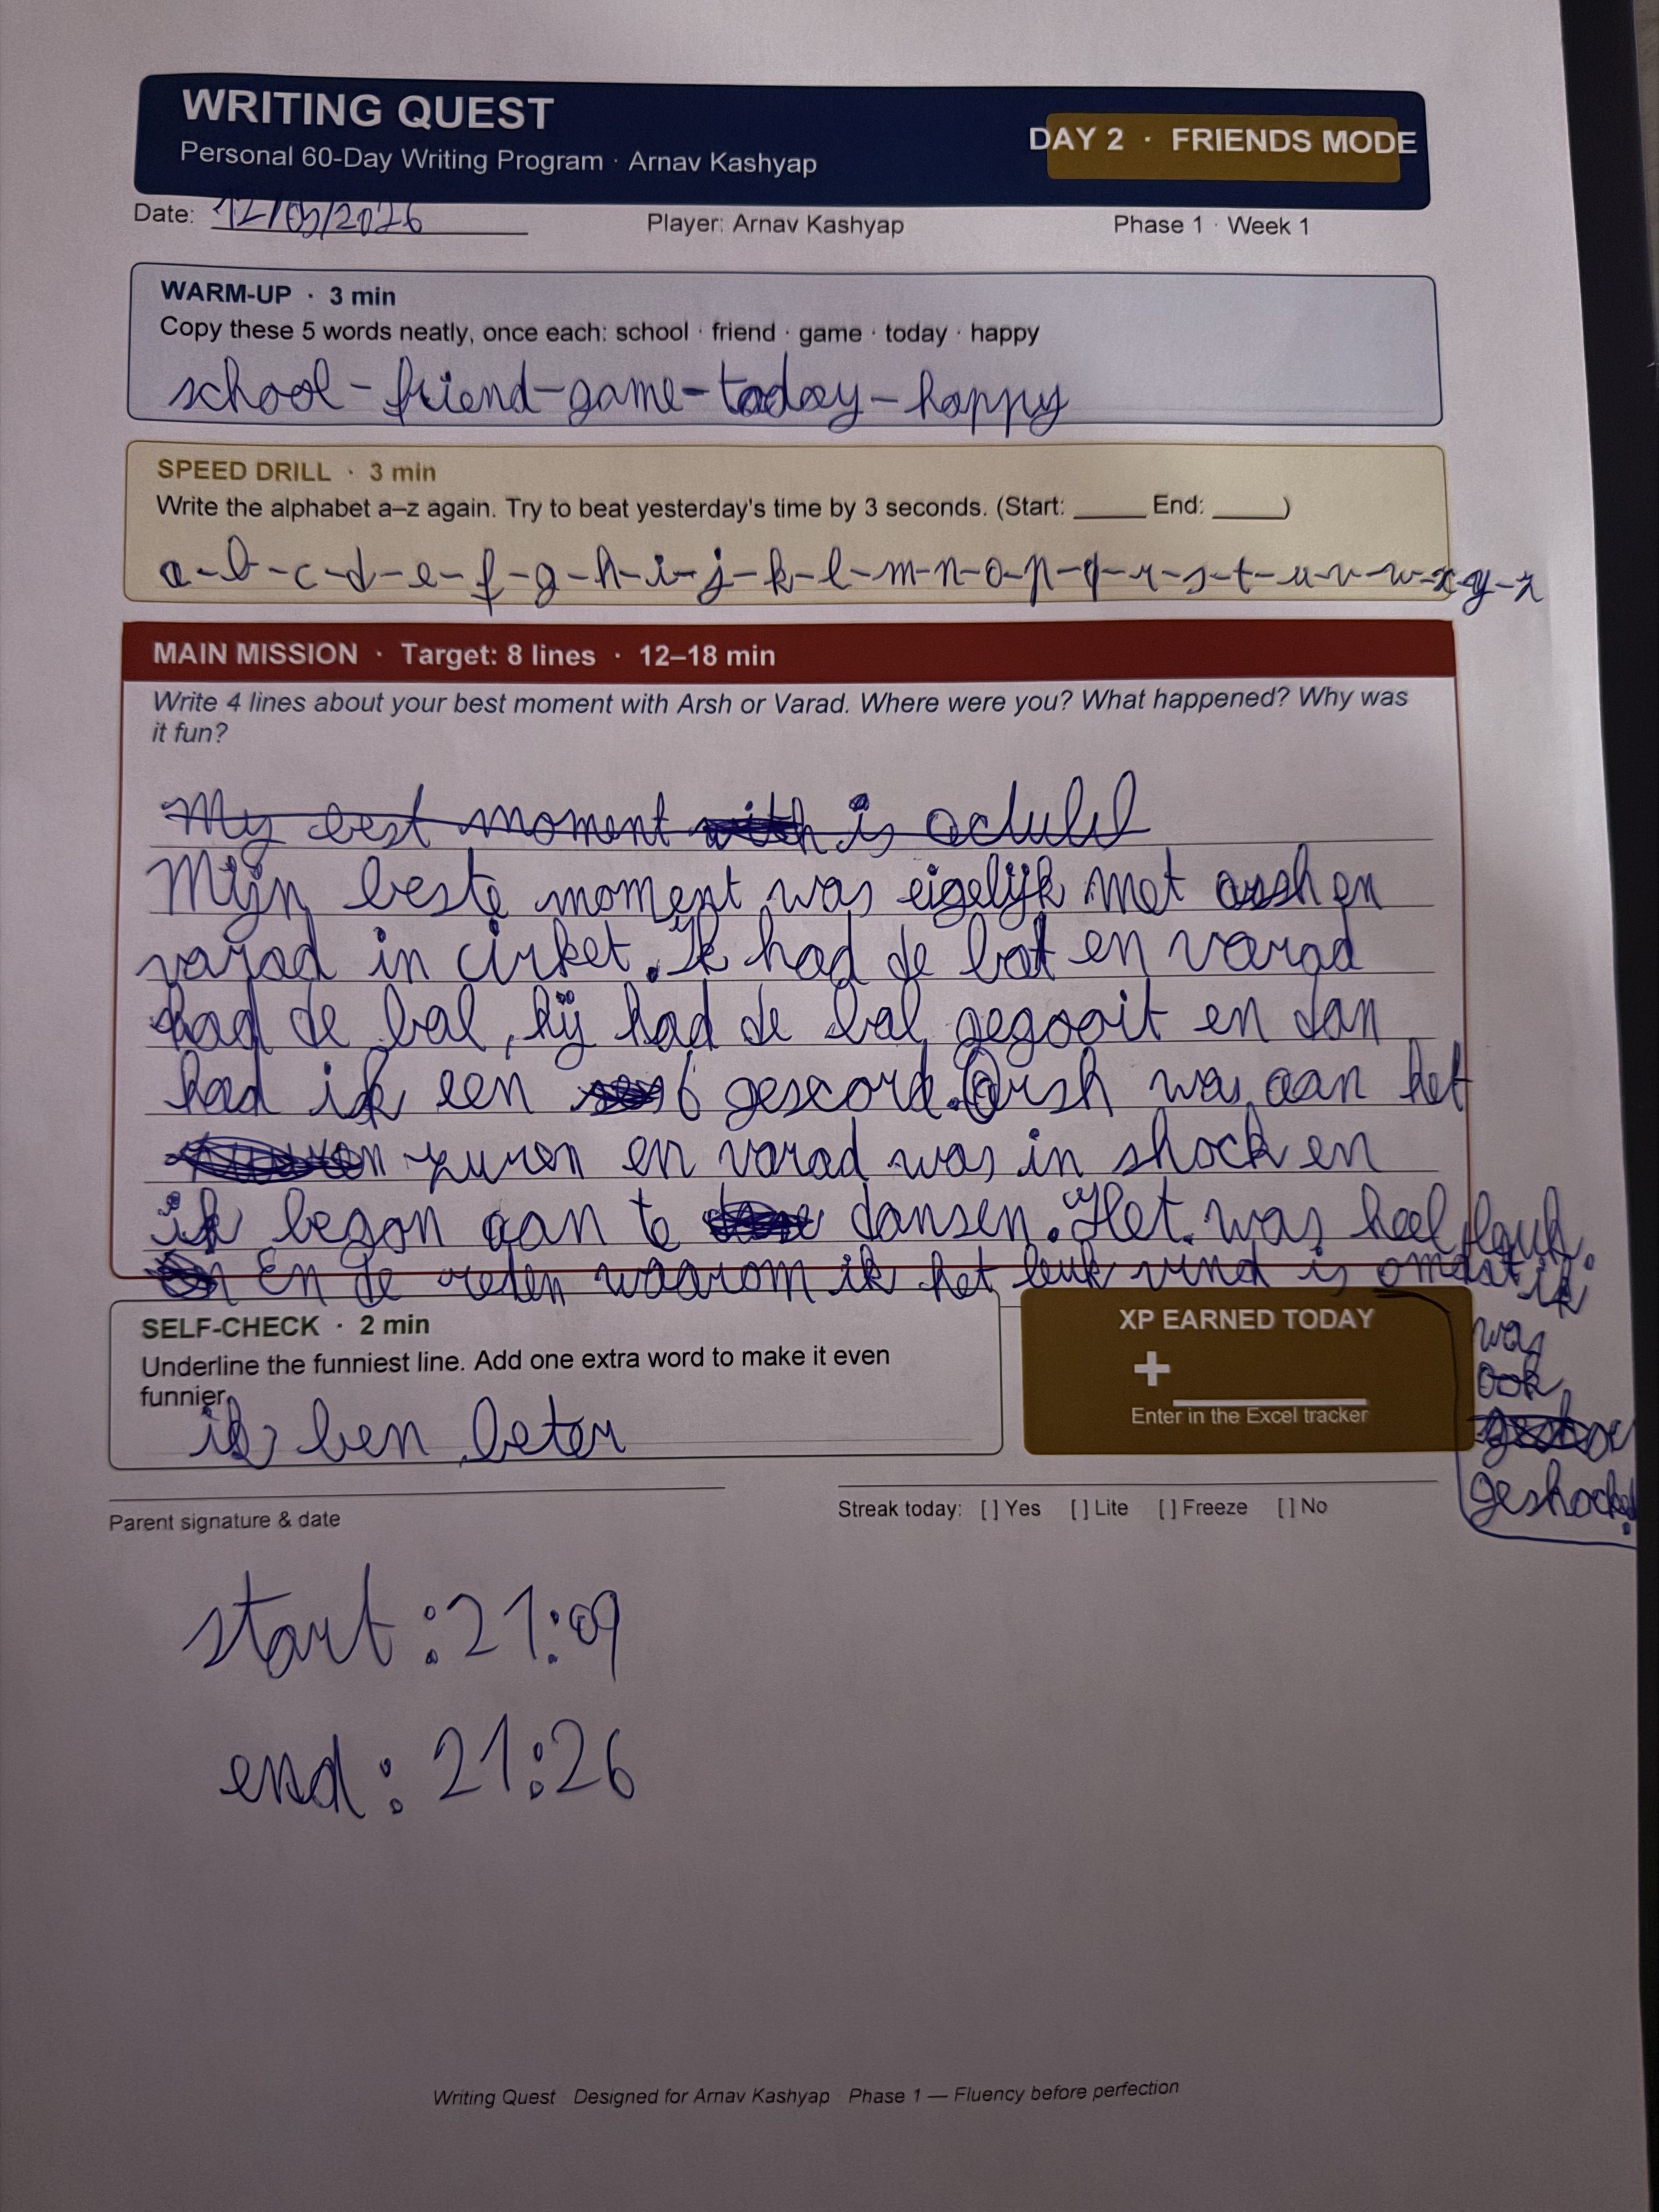 WRITING QUEST
Personal 60-Day Writing Program · Arnav Kashyap
DAY 2 · FRIENDS MODE
Date: 12/05/2026
Player: Arnav Kashyap
Phase 1 · Week 1
WARM-UP · 3 min
Copy these 5 words neatly, once each: school · friend · game · today · happy
school - friend - game - today - happy
SPEED DRILL · 3 min
Write the alphabet a–z again. Try to beat yesterday's time by 3 seconds. (Start: _____ End: _____)
a-b-c-d-e-f-g-h-i-j-k-l-m-n-o-p-q-r-s-t-u-v-w-x-y-z
MAIN MISSION · Target: 8 lines · 12–18 min
Write 4 lines about your best moment with Arsh or Varad. Where were you? What happened? Why was
it fun?
My best moment with is
Mijn beste moment was eigelijk met arsh en
varad in cirket. Ik had de bat en varad
had de bal, hij had de bal gegooit en dan
had ik een 6 gescord. Arsh was aan het
en varad was in shock en
ik begon aan te dansen. Het was heel leuk.
En de reden waarom ik het leuk vind is omdat ik
was
ook
geshockt!
SELF-CHECK · 2 min
Underline the funniest line. Add one extra word to make it even
funnier.
ik ben beter
XP EARNED TODAY
+ ________
Enter in the Excel tracker
Parent signature & date
Streak today: [ ] Yes [ ] Lite [ ] Freeze [ ] No
start : 21:09
end : 21:26
Writing Quest Designed for Arnav Kashyap · Phase 1 — Fluency before perfection